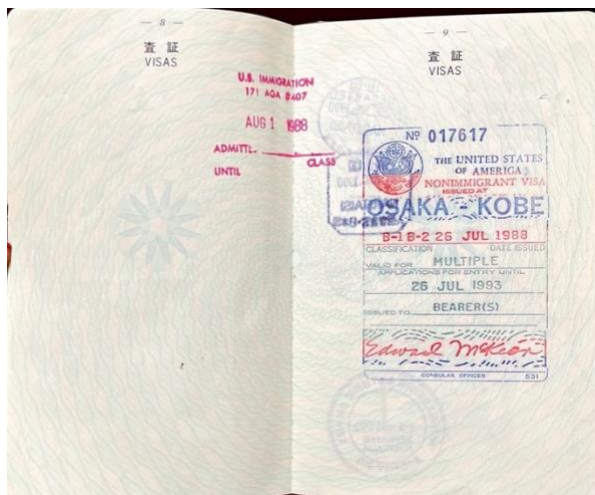 — 8 —
査証
VISAS
U.S. IMMIGRATION
171 AGA #407
AUG 1 1988
ADMITTE.
CLASS
UNTIL
— 9 —
査証
VISAS
Nº 017617
THE UNITED STATES
OF AMERICA
NONIMMIGRANT VISA
ISSUED AT
OSAKA - KOBE
B-1 B-2 26 JUL 1988
CLASSIFICATION DATE ISSUED
VALID FOR MULTIPLE
APPLICATIONS FOR ENTRY UNTIL
26 JUL 1993
ISSUED TO BEARER(S)
Edward McKeon
CONSULAR OFFICER 531